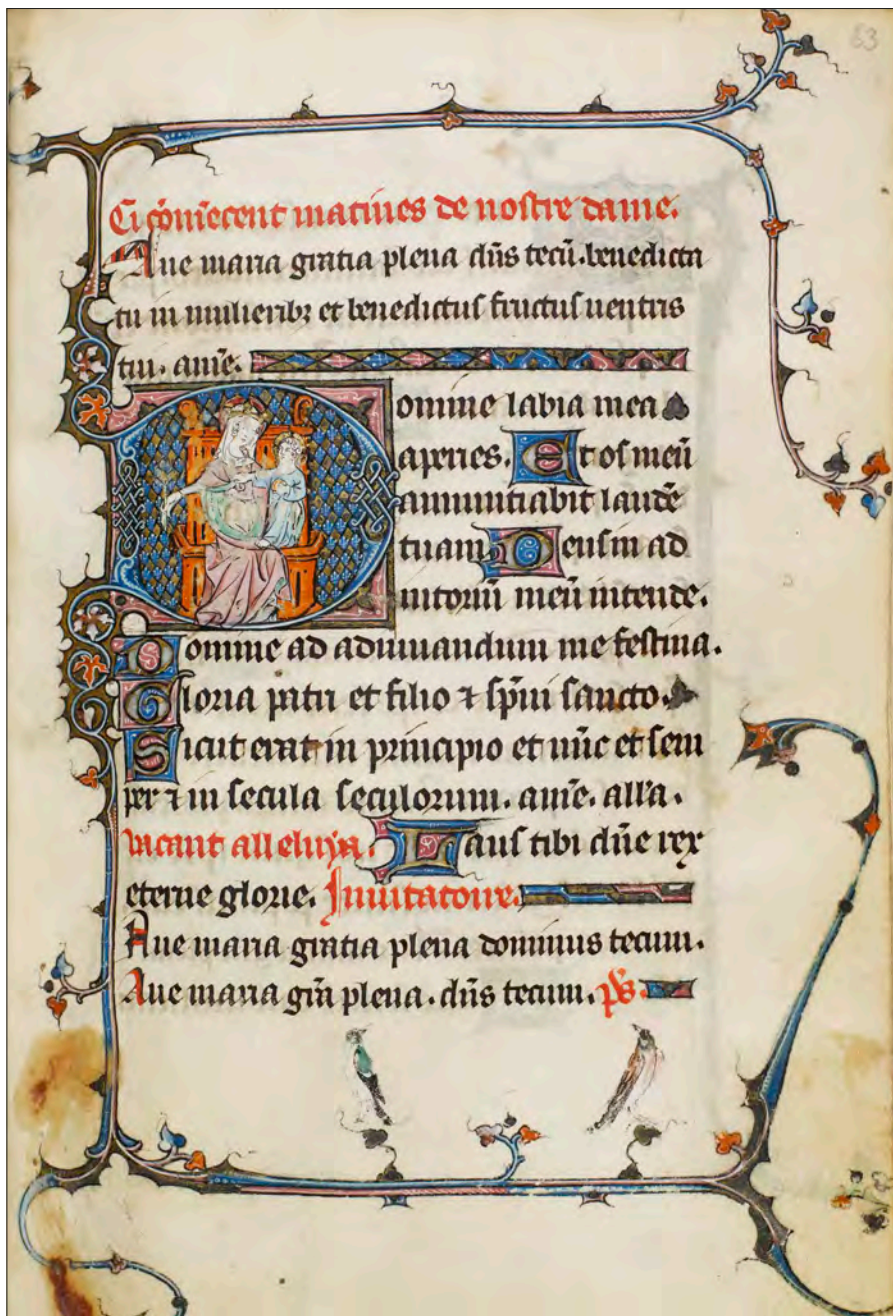 63
Ci cōmēcent matines de nostre dame.
Aue maria gratia plena dn̄s tecū. benedicta
tu in mulieribꝫ et benedictus fructus uentris
tui. amē.
Domine labia mea
aperies. Et os meū
annuntiabit laudē
tuam. Deus in ad
iutoriū meū intende.
Domine ad adiuuandum me festina.
Gloria patri et filio ⁊ sp̄iui sancto.
Sicut erat in principio et nūc et sem
per ⁊ in secula seculorum. amē. all'a.
uicant alleluya. Laus tibi dn̄e rex
eterne glorie. Inuitatoire.
Aue maria gratia plena dominus tecum.
Aue maria gr̄a plena. dn̄s tecum. p̄s.